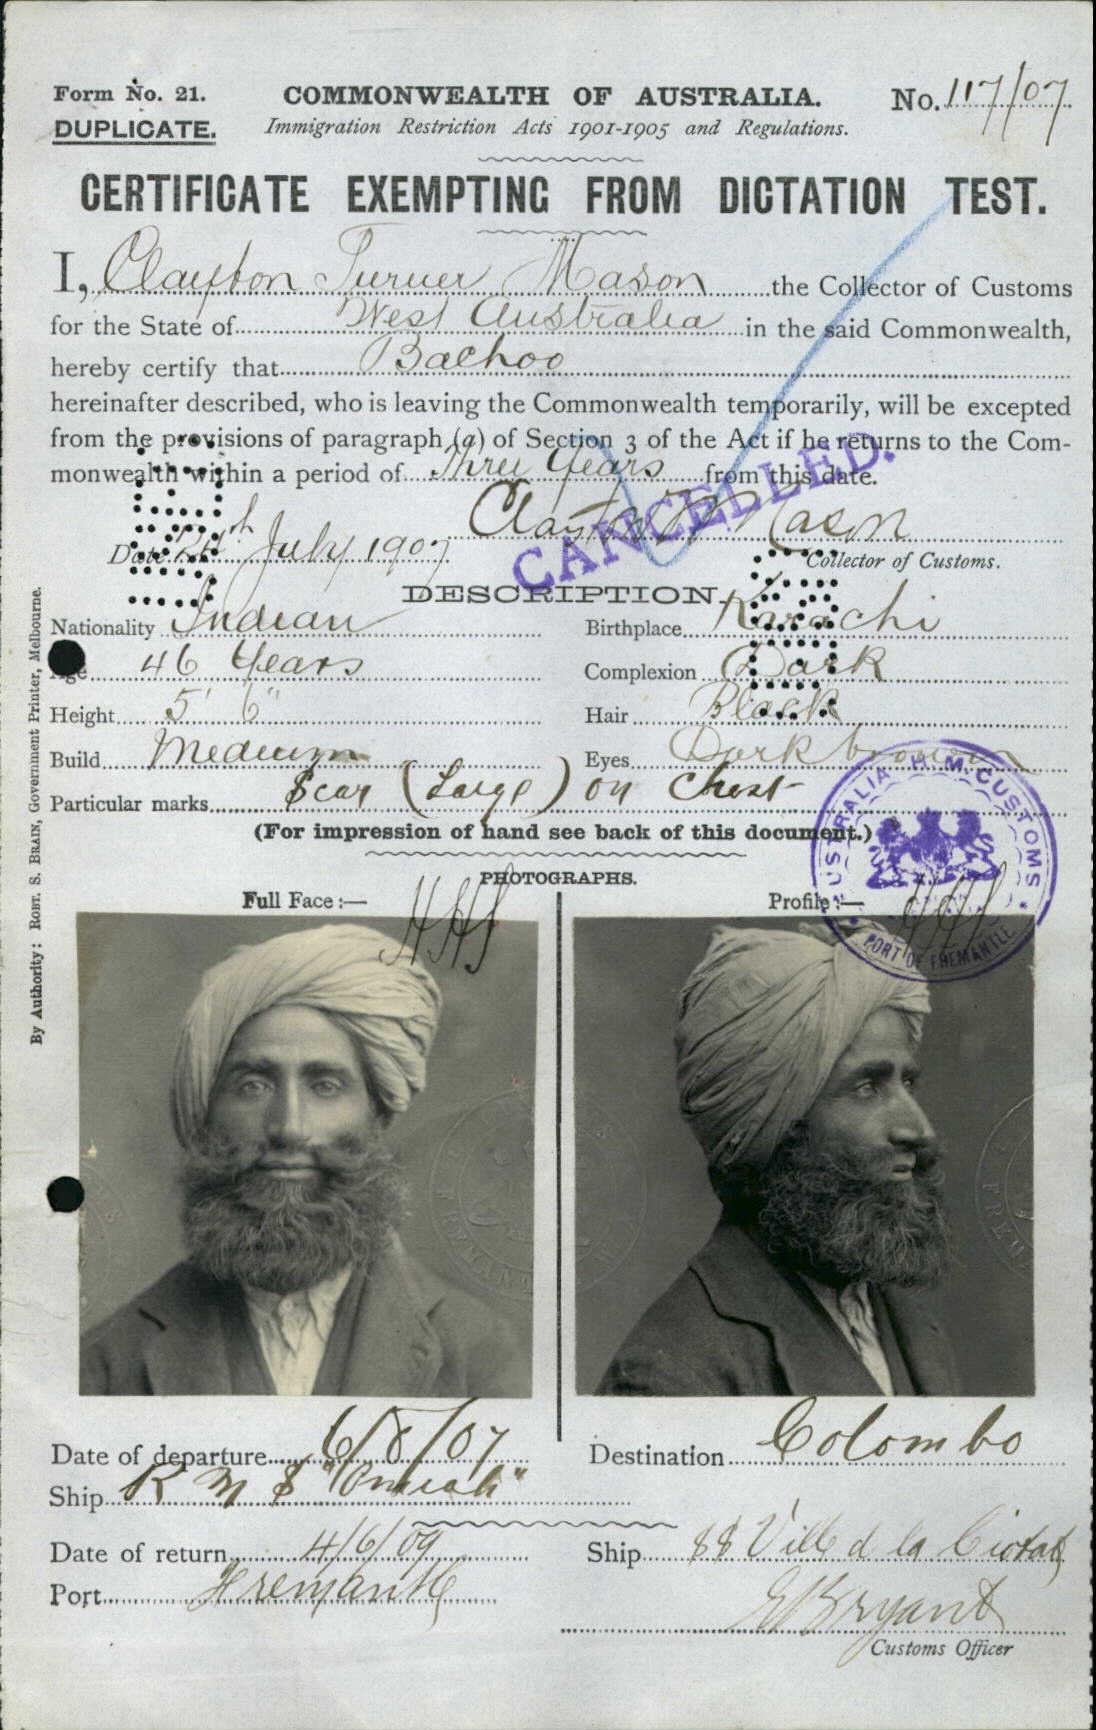 Form No. 21.
DUPLICATE.
COMMONWEALTH OF AUSTRALIA.
Immigration Restriction Acts 1901-1905 and Regulations.
No. 117/07
CERTIFICATE EXEMPTING FROM DICTATION TEST.
I, Clayton Turner Mason the Collector of Customs
for the State of West Australia in the said Commonwealth,
hereby certify that Bachoo
hereinafter described, who is leaving the Commonwealth temporarily, will be excepted
from the provisions of paragraph (a) of Section 3 of the Act if he returns to the Com-
monwealth within a period of Three Years from this date.
CANCELLED.
Date 24th July 1907 Clayton T Mason
Collector of Customs.
DESCRIPTION.
Nationality Indian Birthplace Karachi
Age 46 Years Complexion Dark
Height 5' 6" Hair Black
Build Medium Eyes Dark brown
Particular marks Scar (Large) on Chest
(For impression of hand see back of this document.)
PHOTOGRAPHS.
Full Face :— Profile :—
AUSTRALIA H.M. CUSTOMS
PORT OF FREMANTLE
Date of departure 6/8/07 Destination Colombo
Ship R M S "Omrah"
Date of return 4/6/09 Ship SS Ville d la Ciotat
Port Fremantle
Bryant
Customs Officer
By Authority: ROBT. S. BRAIN, Government Printer, Melbourne.